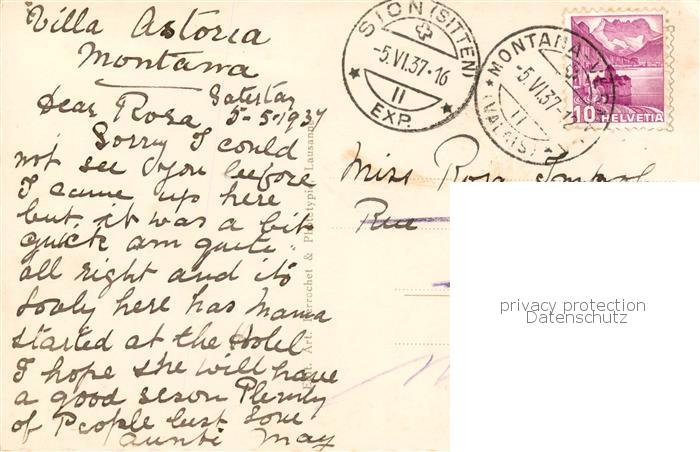 Villa Astoria
Montana
Saterday
5-5-1937
Dear Rosa
Sorry I could
not see you beefore
I came up here
but it was a bit
quick am quite
all right and its
Lovly here has Mama
started at the Hotel
I hope she will have
a good seson Plenty
of People best Love
Aunti May
SION (SITTEN)
-5.VI.37-16
II
EXP.
MONTANA
-5.VI.37-1
II
(VALAIS)
10 HELVETIA
Miss Rosa
Rue
Perrochet & Phototypie Lausanne
privacy protection
Datenschutz